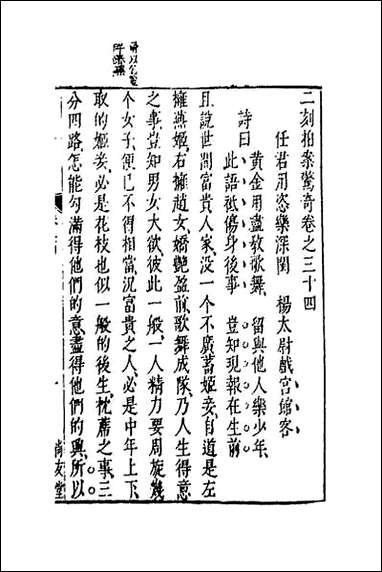 二刻拍案驚奇卷之三十四
任君用恣樂深閨　楊太尉戲宮館客
詩曰　黃金用盡教歌舞　留與他人樂少年
此語秪傷身後事　豈知現報在生前
且說世間富貴人家、沒一個不廣蓄姬妾、自道是左
擁燕姬、右擁趙女、嬌艷盈前、歌舞成隊、乃人生得意
之事、豈知男女大欲、彼此一般、一人精力要周旋幾
个女子、便已不得相當、況富貴之人、必是中年上下、
取的姬妾、必是花枝也似一般的後生、枕蓆之事、三
分四路、怎能勾滿得他們的意、盡得他們的興、所以
尚友堂